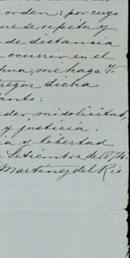 orden; por cuyo
que se repita y
de distancia
ocurrir en el
me haga V.
tregar dicha
anto:
der mi solicitud,
y justicia.
a y libertad
Setiembre de 1874.
Martínez del Rio